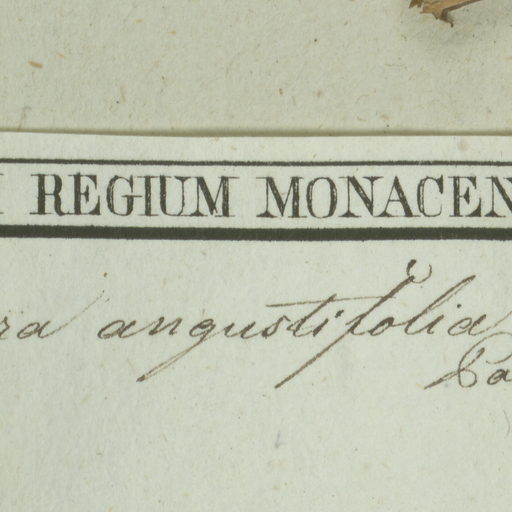 REGIUM MONACEN
ra angustifolia
Pa